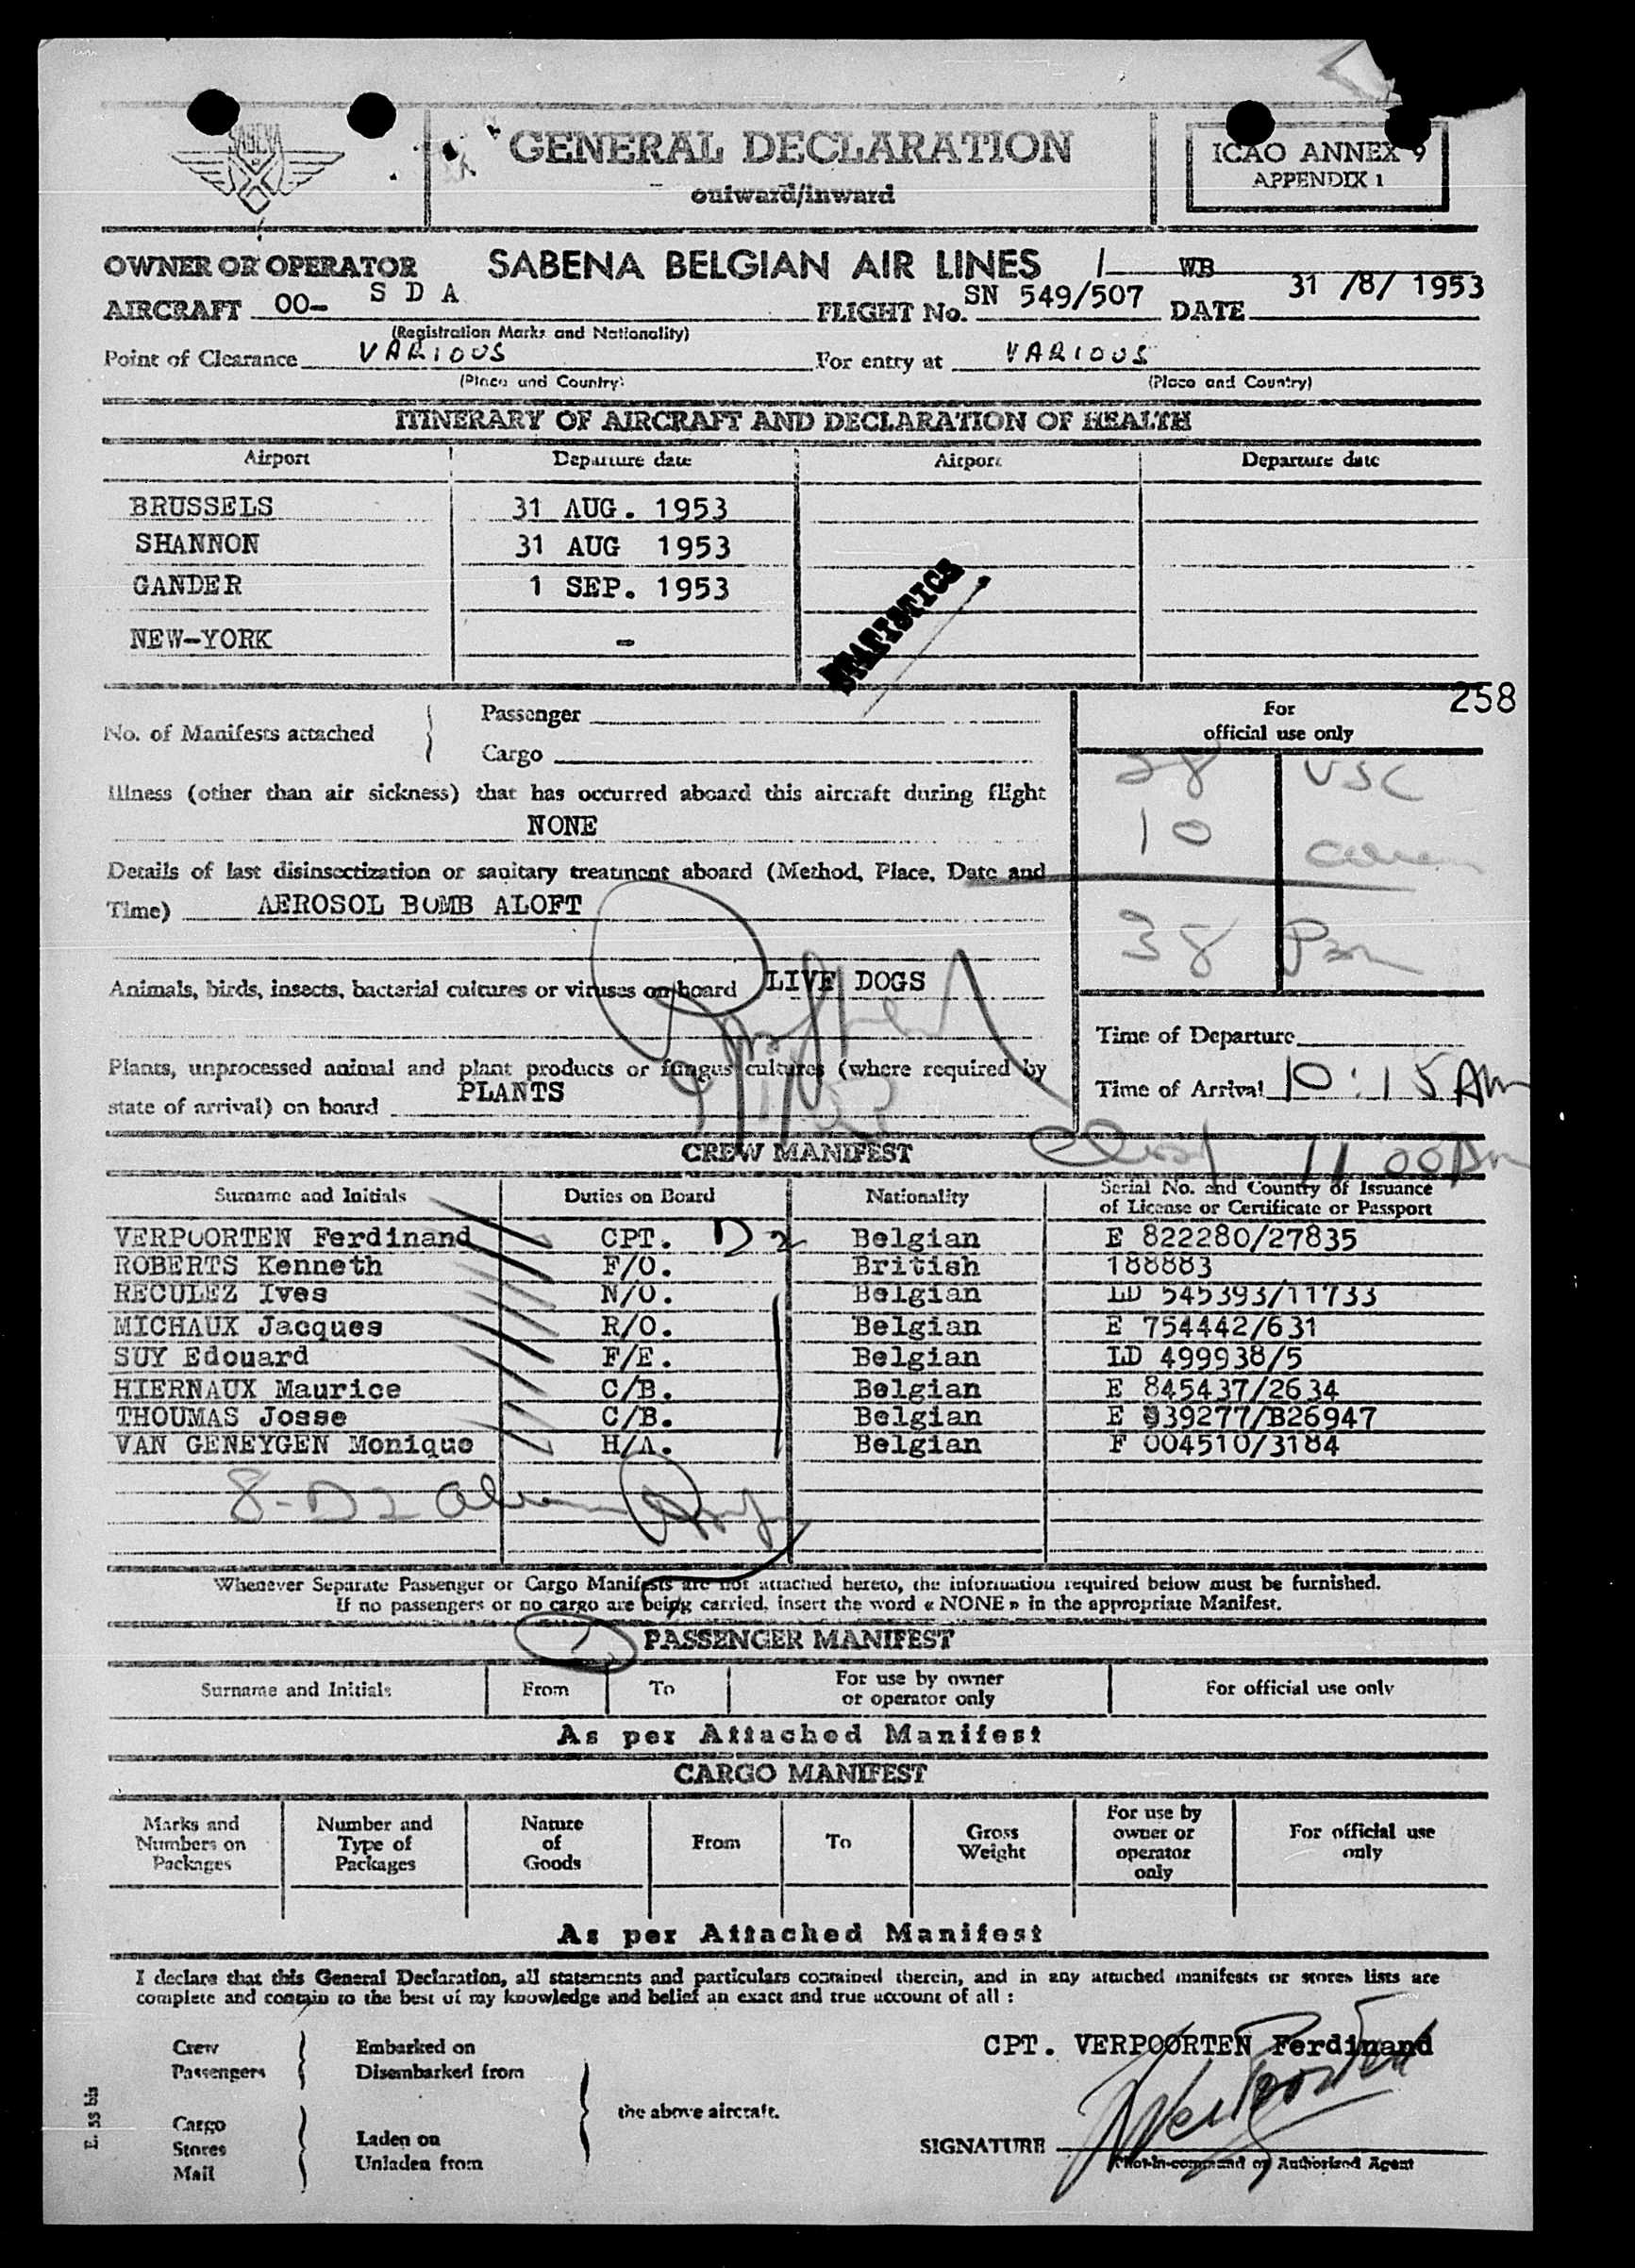 SABENA
GENERAL DECLARATION
outward/inward
ICAO ANNEX 9
APPENDIX 1
OWNER OR OPERATOR SABENA BELGIAN AIR LINES
WB
AIRCRAFT OO- S D A FLIGHT No. SN 549/507 DATE 31 /8/ 1953
(Registration Marks and Nationality)
Point of Clearance VARIOUS For entry at VARIOUS
(Place and Country) (Place and Country)
ITINERARY OF AIRCRAFT AND DECLARATION OF HEALTH
Airport Departure date Airport Departure date
BRUSSELS 31 AUG. 1953
SHANNON 31 AUG 1953
GANDER 1 SEP. 1953
NEW-YORK -
STATISTICS
258
No. of Manifests attached
Passenger
Cargo
For
official use only
28 USC
10
38
Illness (other than air sickness) that has occurred aboard this aircraft during flight
NONE
Details of last disinsectization or sanitary treatment aboard (Method, Place, Date and
Time) AEROSOL BOMB ALOFT
Animals, birds, insects, bacterial cultures or viruses on board LIVE DOGS
Plants, unprocessed animal and plant products or fungus cultures (where required by
state of arrival) on board PLANTS
Time of Departure
Time of Arrival 10:15 Am
11 00
CREW MANIFEST
Surname and Initials Duties on Board Nationality Serial No. and Country of Issuance
of License or Certificate or Passport
VERPOORTEN Ferdinand CPT. D2 Belgian E 822280/27835
ROBERTS Kenneth F/O. British 188883
RECULEZ Ives N/O. Belgian LD 545393/11733
MICHAUX Jacques R/O. Belgian E 754442/631
SUY Edouard F/E. Belgian LD 499938/5
HIERNAUX Maurice C/B. Belgian E 845437/2634
THOUMAS Josse C/B. Belgian E 939277/B26947
VAN GENEYGEN Monique H/A. Belgian F 004510/3184
8-D2
Whenever Separate Passenger or Cargo Manifests are not attached hereto, the information required below must be furnished.
If no passengers or no cargo are being carried, insert the word « NONE » in the appropriate Manifest.
PASSENGER MANIFEST
Surname and Initials From To For use by owner
or operator only
For official use only
As per Attached Manifest
CARGO MANIFEST
Marks and
Numbers on
Packages
Number and
Type of
Packages
Nature
of
Goods
From
To
Gross
Weight
For use by
owner or
operator
only
For official use
only
As per Attached Manifest
I declare that this General Declaration, all statements and particulars contained therein, and in any attached manifests or stores lists are
complete and contain to the best of my knowledge and belief an exact and true account of all :
Crew
Passengers
Embarked on
Disembarked from
Cargo
Stores
Mail
Laden on
Unladen from
the above aircraft.
CPT. VERPOORTEN Ferdinand
SIGNATURE
Pilot-in-command or Authorized Agent
E. 55 bis